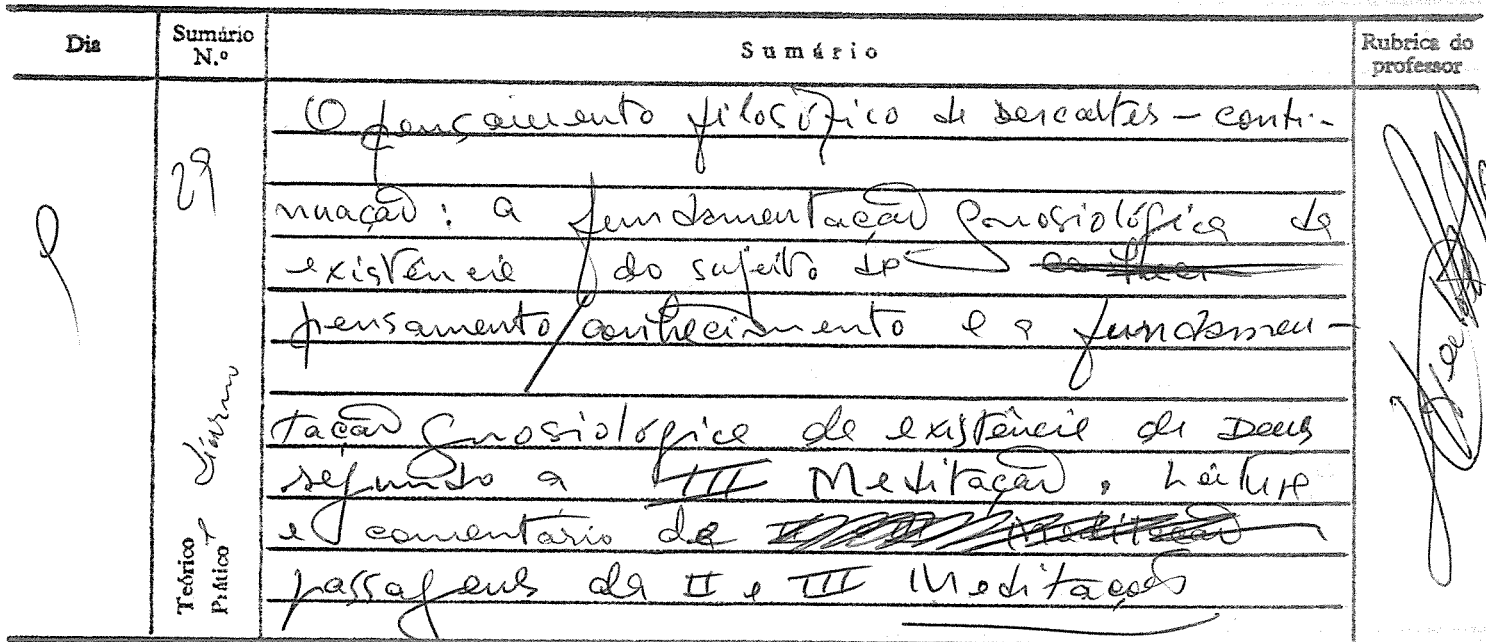 Dia
Sumário N.º
Sumário
Rubrica do professor
29
O pensamento filosófico de Descartes – conti-
nuação: a fundamentação gnosiológica da
existência do sujeito de
pensamento/conhecimento e a fundamen-
tação gnosiológica da existência de Deus
segundo a III Meditação. Leitura
e comentário de
passagens da II e III Meditação
Teórico
Prático